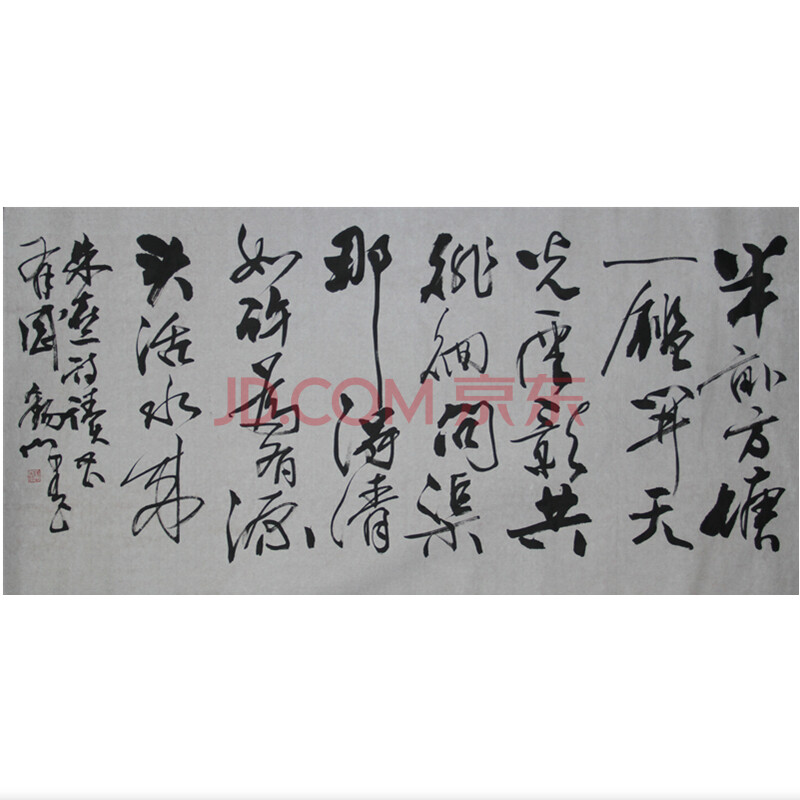 半亩方塘
一鑑开天
光云影共
徘徊问渠
那得清
如许为有源
头活水来
朱熹诗读书
有感
JD.COM 京东